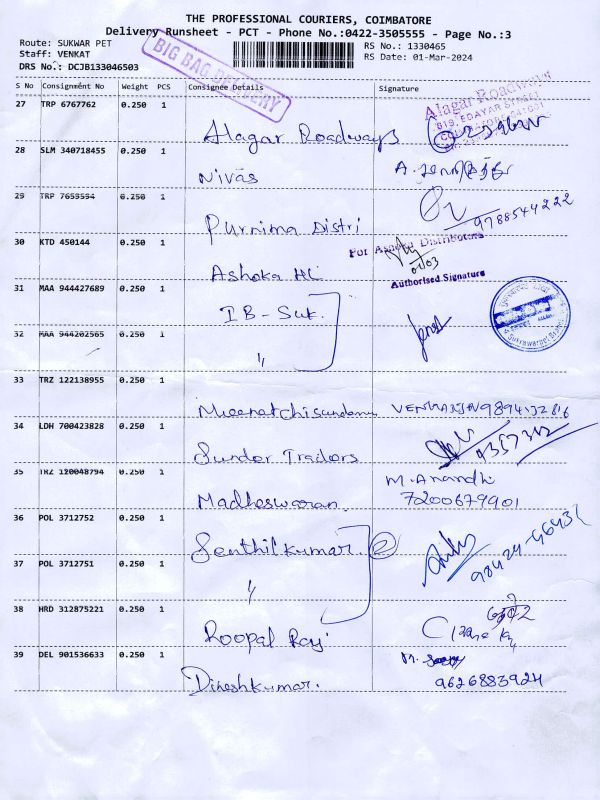 THE PROFESSIONAL COURIERS, COIMBATORE
Delivery Runsheet - PCT - Phone No.:0422-3505555 - Page No.:3
Route: SUKWAR PET
RS No.: 1330465
Staff: VENKAT
RS Date: 01-Mar-2024
DRS No.: DCJB133046503
BIG BAG DELIVERY
S No Consignment No Weight PCS Consignee Details Signature
27 TRP 6767762 0.250 1
Alagar Roadways
Alagar Roadways
28 SLM 340718455 0.250 1
Nivas
29 TRP 7653594 0.250 1
Purnima Distri
9788544222
30 KTD 450144 0.250 1
For Ashoka Distributors
01/03
Ashoka HC
Authorised Signature
31 MAA 944427689 0.250 1
IB - Suk.
32 MAA 944202565 0.250 1
"
33 TRZ 122138955 0.250 1
Meenatchisundaram
34 LDH 700423828 0.250 1
Sunder Traders
35 TRZ 120048794 0.250 1
M. Anandhi
Madheswaran.
7200679901
36 POL 3712752 0.250 1
Senthilkumar. 2
37 POL 3712751 0.250 1
"
38 HRD 312875221 0.250 1
Roopal Raj
39 DEL 901536633 0.250 1
Dineshkumar.
9626883924